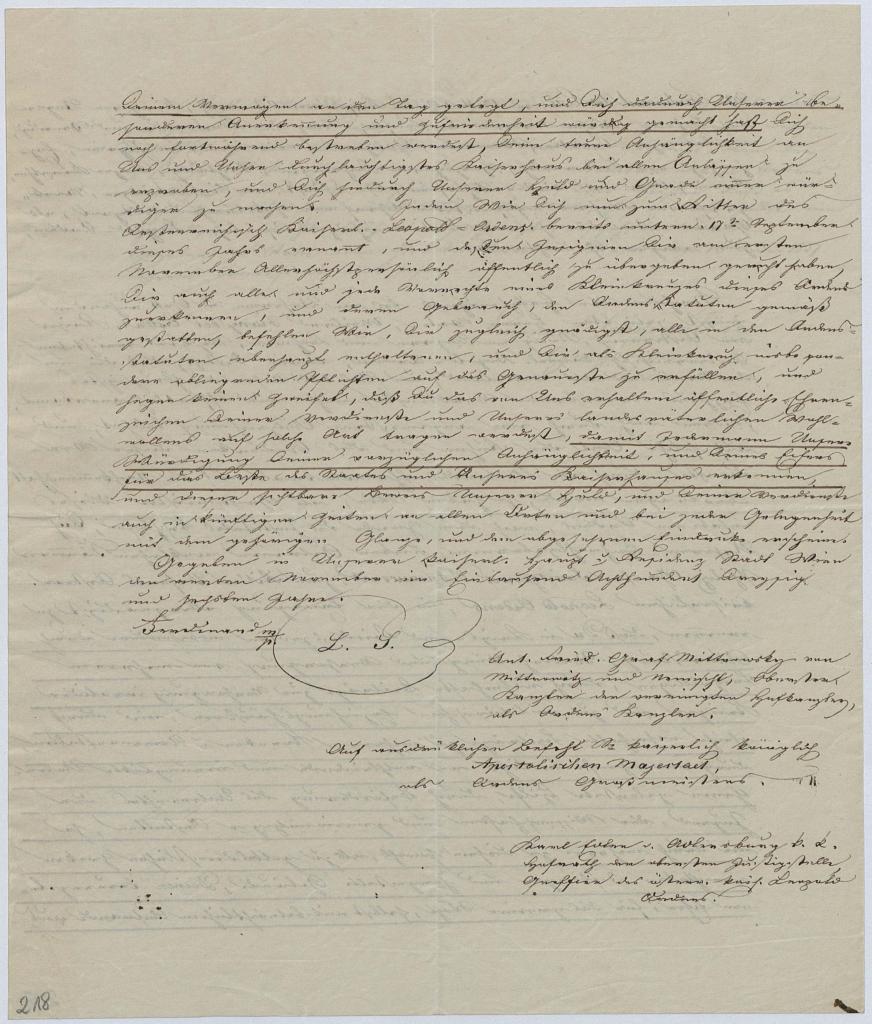 Deinem Vermögen an den Tag gelegt, und Dich dadurch Unserer be-
sonderen Anerkennung und Zufriedenheit würdig gemacht hast, Dich
noch fortwährend bestreben werdest, Deine treue Anhänglichkeit an
Uns und Unser durchlauchtigstes Kaiserhaus bei allen Anlässen zu
erproben, und Dich hiedurch Unserer Huld und Gnade immer wür-
diger zu machen. Indem Wir Dich nun zum Ritter des
Oesterreichisch Kaiserl. Leopold-Ordens bereits unterm 17ten September
dieses Jahrs ernannt, und dessen Insignien Dir am ersten
November Allerhöchstpersönlich öffentlich zu übergeben geruht haben,
Dir auch alle und jede Vorrechte eines Kleinkreuzes dieses Ordens
zuerkennen, und deren Gebrauch, den Ordens Statuten gemäß
gestatten, befehlen Wir Dir zugleich gnädigst, alle in den Ordens-
statuten überhaupt enthaltenen, und Dir als Kleinkreuz insbeson-
dere obliegenden Pflichten auf das Genaueste zu erfüllen, und
hegen keinen Zweifel, daß Du das von Uns erhaltene öffentliche Ehren-
zeichen Deiner Verdienste und Unseres landesväterlichen Wohl-
wollens auf solche Art tragen werdest, damit Jedermann Unsere
Würdigung Deiner vorzüglichen Anhänglichkeit, und Deines Eifers
für das Beste des Staates und Unseres Kaiserhauses erkennen,
und dieser sichtbare Beweis Unserer Huld, und Deiner Verdienste
auch in künftigen Zeiten an allen Orten und bei jeder Gelegenheit
mit dem gehörigen Glanze, und dem abgesehenen Eindrucke erscheine.
Gegeben in Unserer kaiserl. Haupt u Residenz Stadt Wien
den vierten November im Eintausend Achthundert dreyßig
und sechsten Jahre.
Ferdinand m/p.
L. S.
Ant. Fried. Graf Mittrowsky von
Mittrowitz und Nemischl, Oberster
Kanzler der vereinigten Hofkanzley,
als Ordens Kanzler.
Auf ausdrüklichen Befehl Sr kaiserlich königlich
Apostolischen Majestaet,
als Ordens Großmeisters.
Karl Edler v. Adlersburg k. k.
Hofrath der obersten Justizstelle
Greffier des österr. kais. Leopold
Ordens.
218